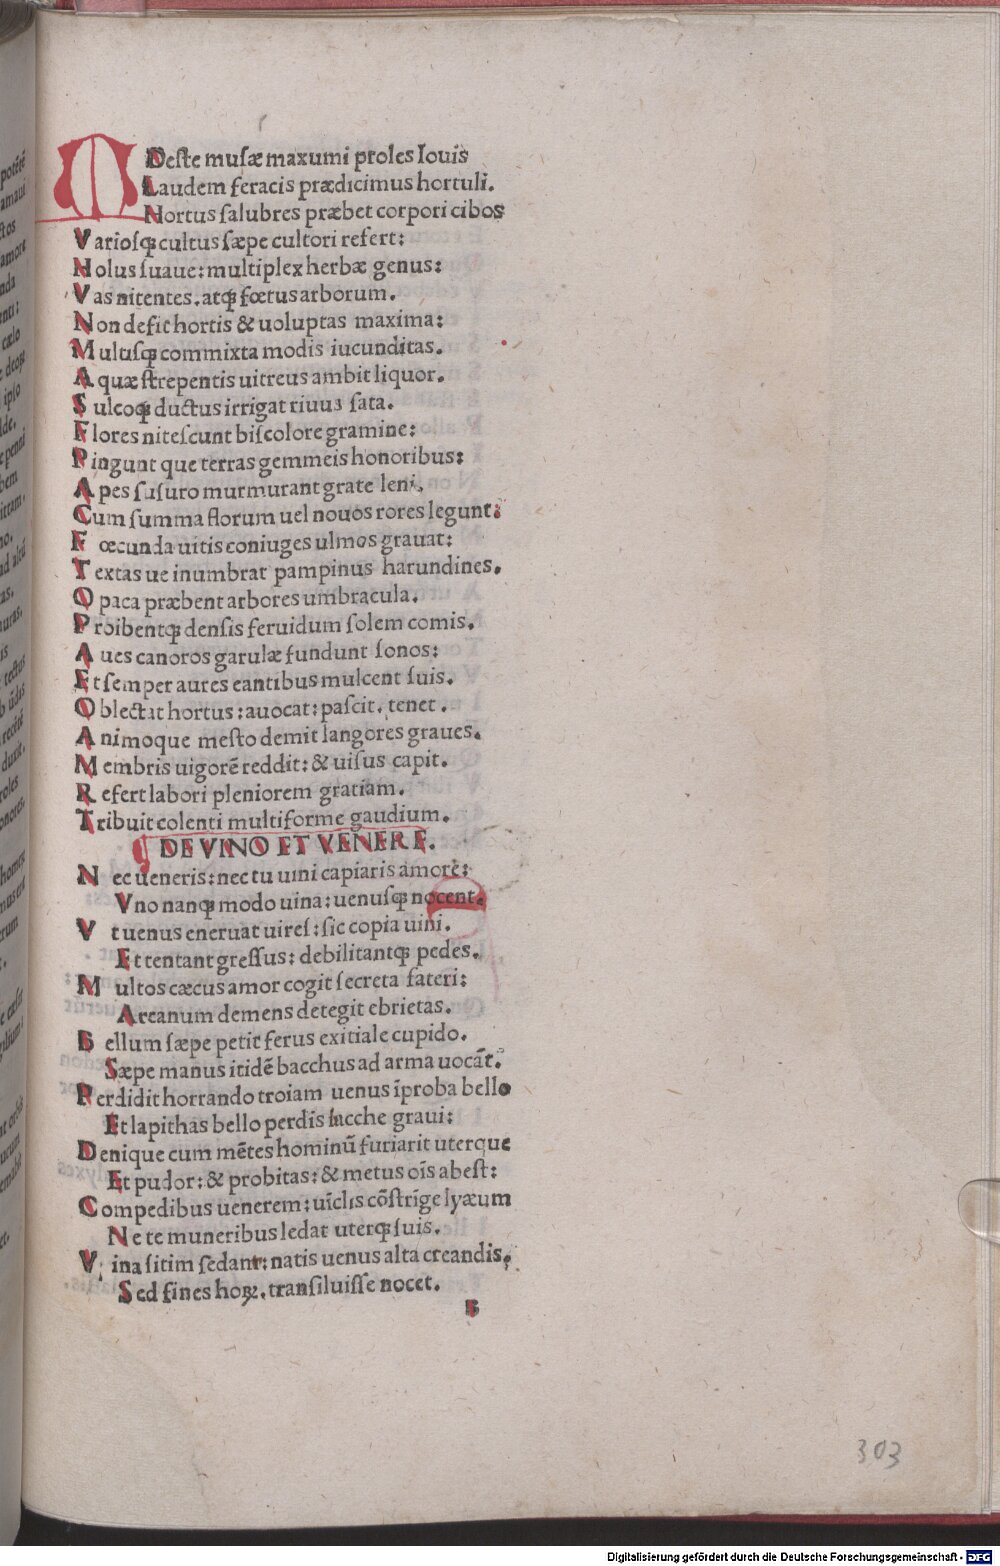 M Deste musæ maxumi proles Iouis
Laudem feracis prædicimus hortuli.
Nortus salubres præbet corpori cibos
Variosqꝫ cultus sæpe cultori refert:
Nolus suaue: multiplex herbæ genus:
Vas nitentes. atqꝫ fœtus arborum.
Non defit hortis & uoluptas maxima:
Multisqꝫ commixta modis iucunditas.
Aquæ strepentis uitreus ambit liquor.
Sulcoqꝫ ductus irrigat riuus sata.
Flores nitescunt biscolore gramine:
Pingunt que terras gemmeis honoribus:
Apes susuro murmurant grate leni,
Cum summa florum uel nouos rores legunt:
Fœcunda uitis coniuges ulmos grauat:
Textas ue inumbrat pampinus harundines.
Opaca præbent arbores umbracula.
Proibentqꝫ densis feruidum solem comis.
Aues canoros garulæ fundunt sonos:
Et semper aures cantibus mulcent suis.
Oblectat hortus: auocat: pascit. tenet.
Animoque mesto demit langores graues.
Membris uigorē reddit: & uisus capit.
Refert labori pleniorem gratiam.
Tribuit colenti multiforme gaudium.
¶ DE VINO ET VENERE.
Nec ueneris: nec tu uini capiaris amore:
Vno nanqꝫ modo uina: uenusqꝫ nocent.
Vt uenus eneruat uires: sic copia uini.
Et tentant gressus: debilitantqꝫ pedes.
Multos cæcus amor cogit secreta fateri:
Arcanum demens detegit ebrietas.
Bellum sæpe petit ferus exitiale cupido.
Sæpe manus itidē bacchus ad arma uocāt.
Perdidit horrando troiam uenus īproba bello
Et lapithas bello perdis iacche graui:
Denique cum mētes hominū furiarit uterque
Et pudor: & probitas: & metus oīs abest:
Compedibus uenerem: uīclis cōstrīge lyæum
Ne te muneribus ledat uterqꝫ suis.
Vina sitim sedant: natis uenus alta creandis.
Sed fines hoꝝ. transiluisse nocet.
B
303
Digitalisierung gefördert durch die Deutsche Forschungsgemeinschaft - DFG